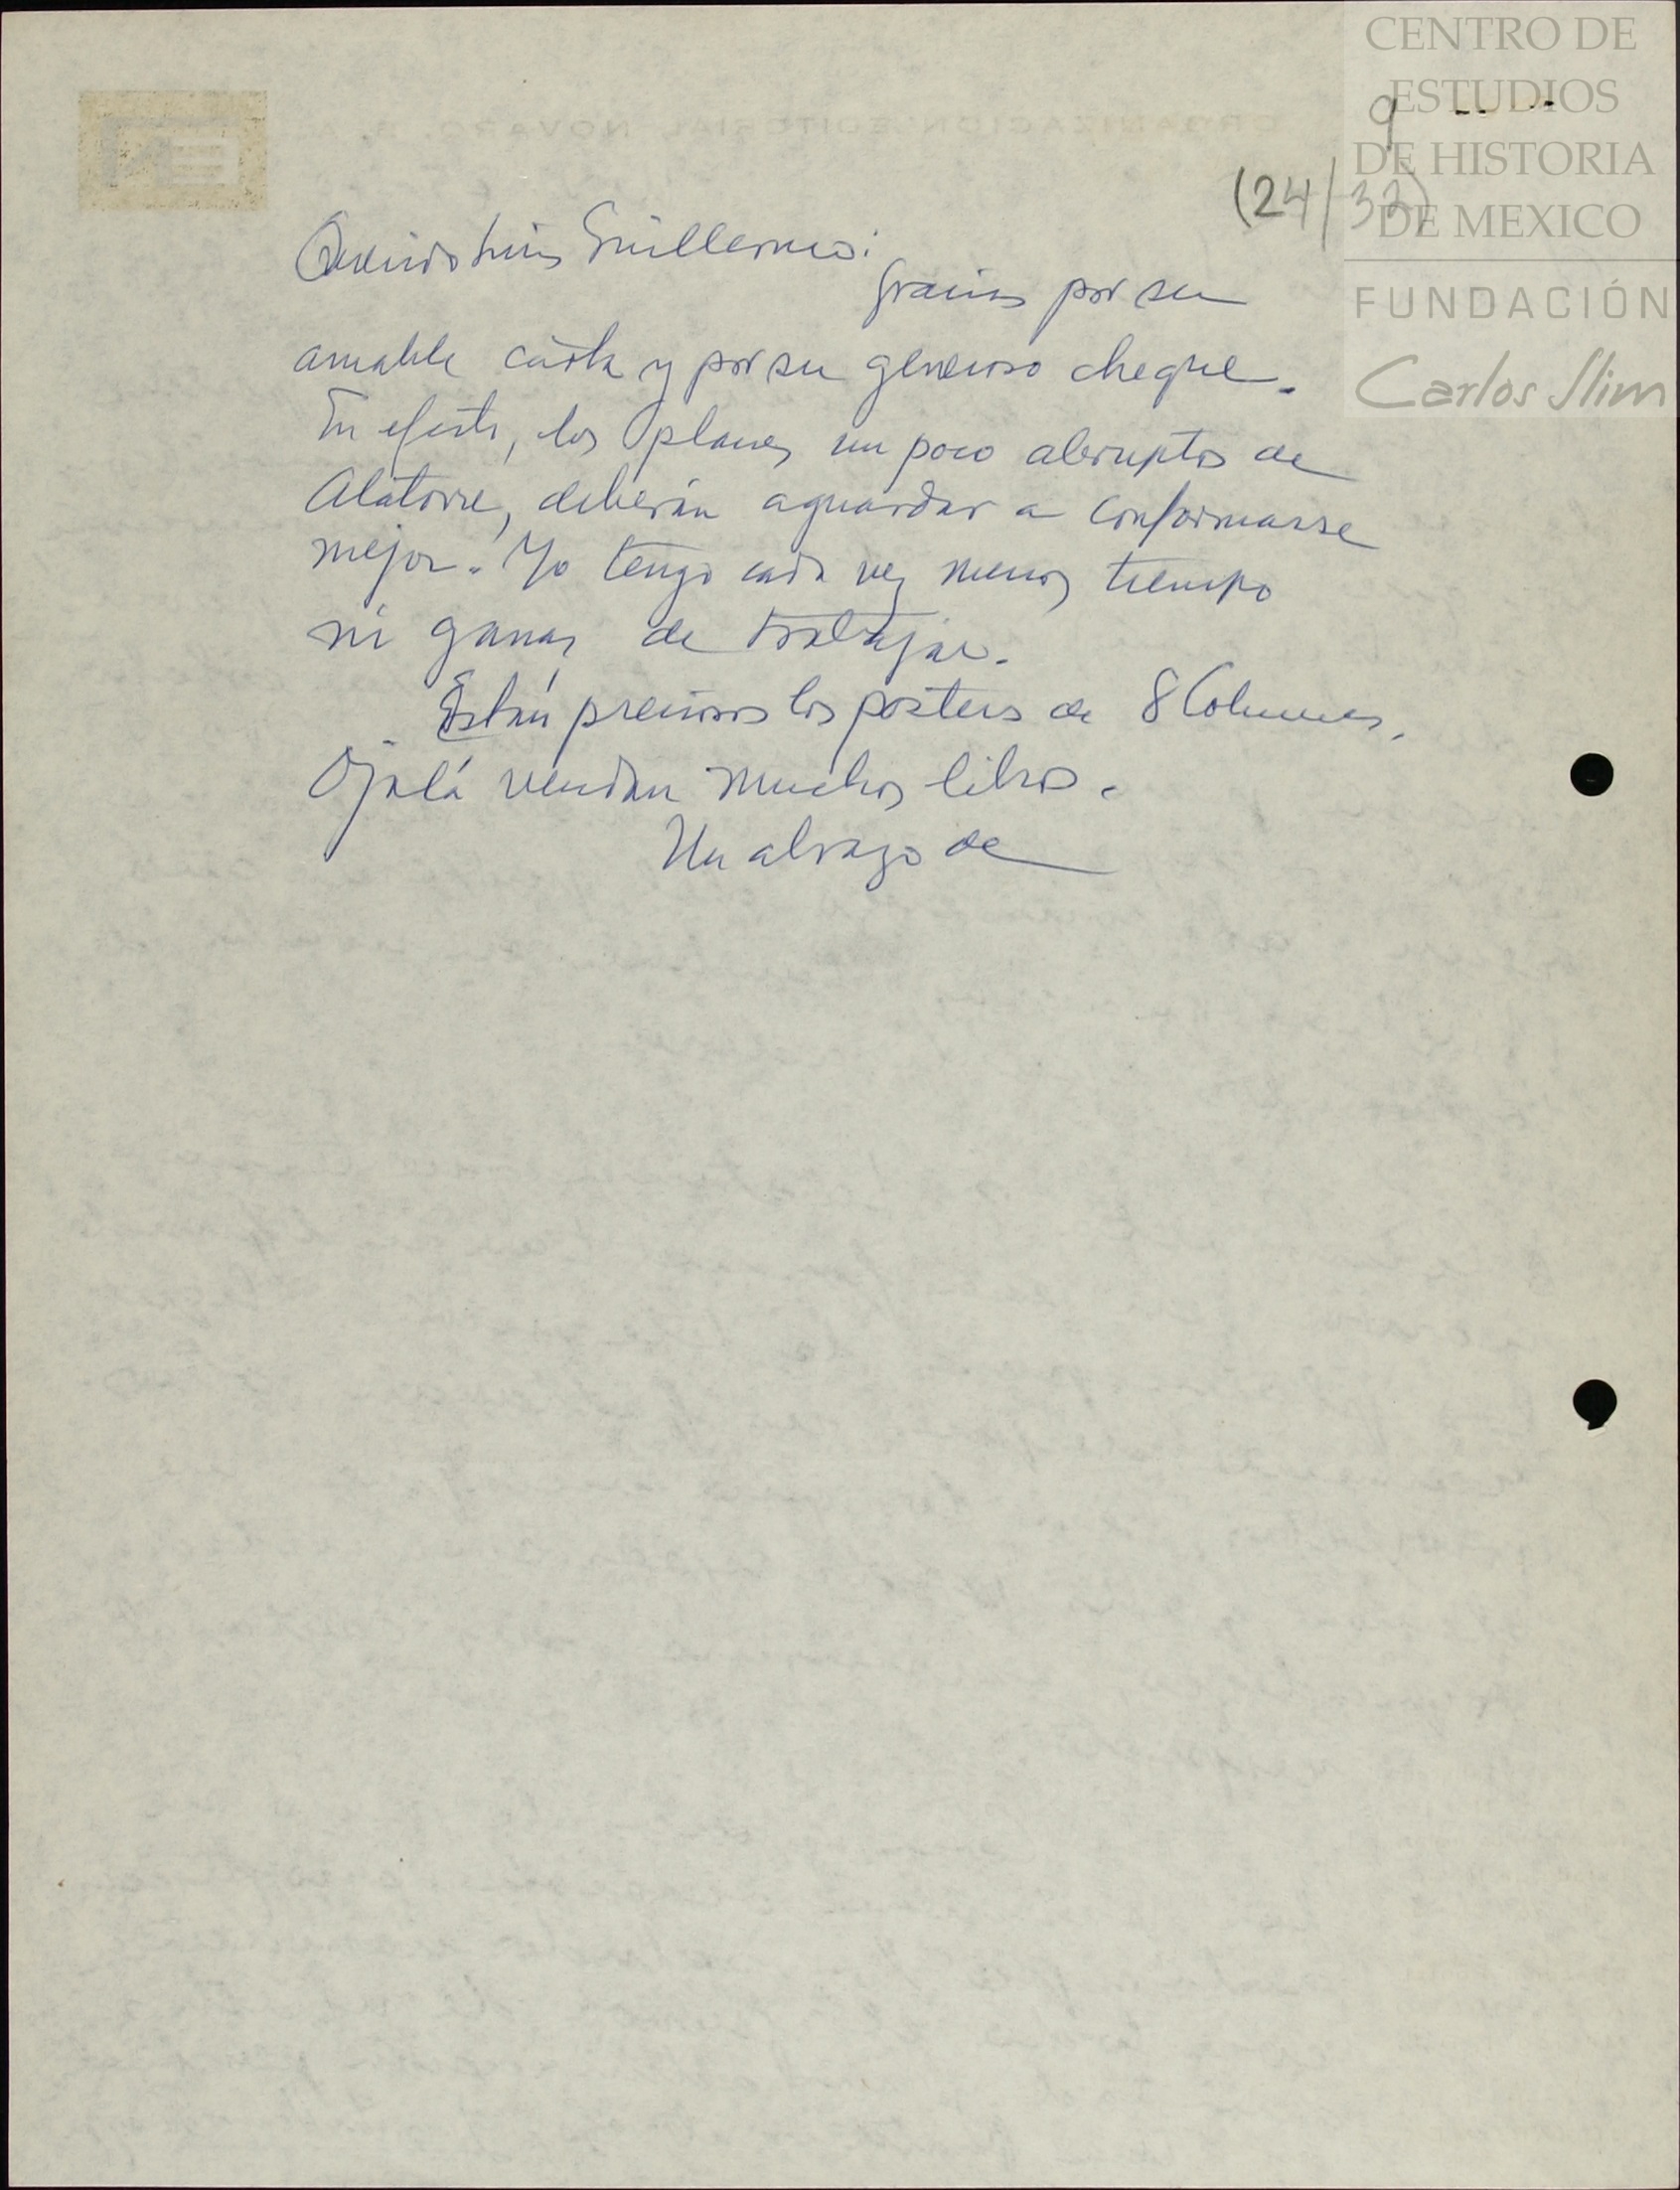 CENTRO DE
ESTUDIOS
DE HISTORIA
DE MEXICO
FUNDACIÓN
Carlos Slim
9
(24/32)
ORGANIZACION EDITORIAL NOVARO, S.
Querido Luis Guillermo:
Gracias por su
amable carta y por su generoso cheque.
En efecto, los planes un poco abruptos de
Alatorre, deberán aguardar a conformarse
mejor. Yo tengo cada vez menos tiempo
ni ganas de trabajar.
Están preciosos los posters de 8 Columnas.
Ojalá vendan muchos libros.
Un abrazo de